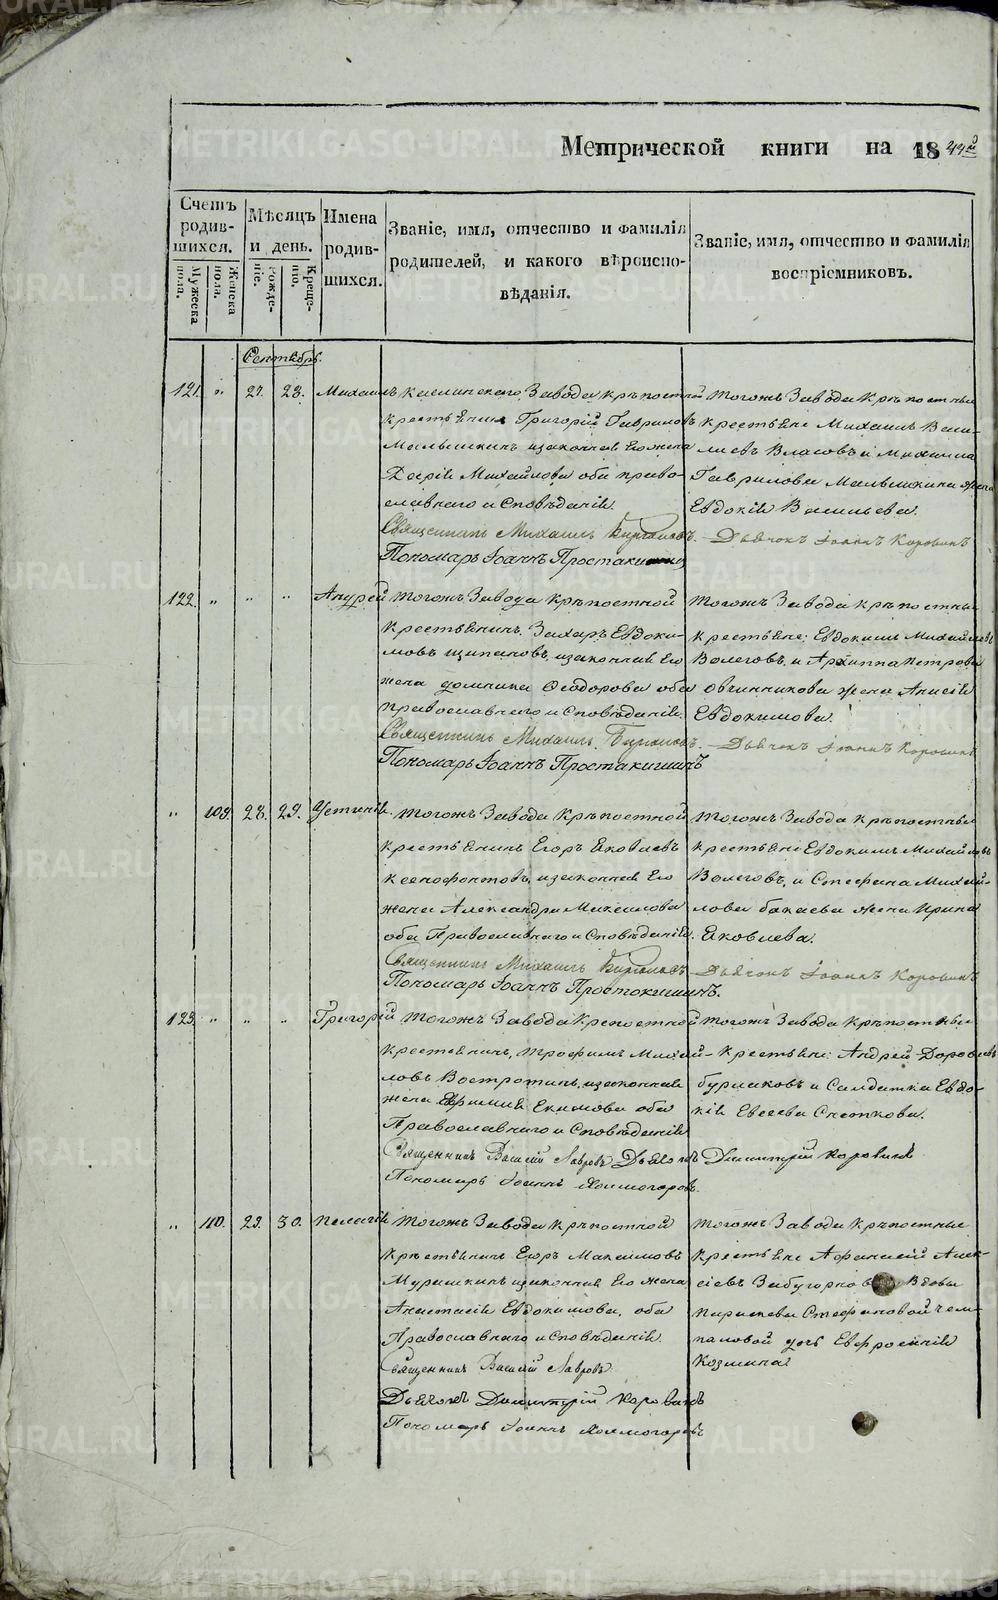 Метрической книги на 1844й
Счетъ родившихся.
Мужеска пола.
Женска пола.
Мѣсяцъ и день.
Рожденіе.
Крещенію.
Имена родившихся.
Званіе, имя, отчество и фамилія
родителей, и какого вѣроиспо-
вѣданія.
Званіе, имя, отчество и фамилія
воспріемниковъ.
Сентябрь.
121. " 27. 28. Михаилъ
Каслинскаго Завода крѣпостной
крестьянинъ Григорій Гавриловъ
Малышкинъ, изаконная Его жена
Дарія Михайлова оба право-
славнаго исповѣданія.
Священникъ Михаилъ
Пономарь Іоаннъ
Тогожъ Завода Крѣпостные
крестьяне Михаилъ Васи-
лиевъ Власовъ и Михаила
Гаврилова Малышкина жена
Евдокія Васильева.
Дьячокъ Іоаннъ Коровинъ
122. " " " Андрей
Тогожъ Завода Крѣпостной
крестьянинъ Захаръ Евдоки-
мовъ Щипановъ, изаконная Его
жена Домника Ѳеодорова оба
православнаго исповѣданія.
Священникъ Михаилъ
Пономарь Іоаннъ Простакишинъ
Тогожъ Завода крѣпостные
крестьяне: Евдокимъ Михайловъ
Волеговъ, и Архиппа Петрова
Овчинникова жена Анисія
Евдокимова.
Дьячокъ Іоаннъ Коровинъ
" 109. 28. 29. Устинія
Тогожъ Завода Крѣпостной
крестьянинъ Егоръ Яковлевъ
Ксенофонтовъ, изаконная Его
жена Александра Максимова
оба Православнаго исповѣданія.
Священникъ Михаилъ
Пономарь Іоаннъ Простокишинъ.
Тогожъ Завода крѣпостные
крестьяне Евдокимъ Михайловъ
Волеговъ, и Стефана Михай-
лова Бакаева жена Ирина
Яковлева.
Дьячокъ Іоаннъ Коровинъ
123. " " " Григорій
Тогожъ Завода Крепостной
крестьянинъ, Трофимъ Михай-
ловъ Востротинъ, изаконная
жена Евфимия Екимова оба
Православнаго исповѣданія
Священникъ Василій Лавровъ Дьячокъ Димитрій Коровинъ
Пономарь Іоаннъ Холмогоровъ.
Тогожъ Завода Крѣпостные
Крестьяне: Андрей Дорофеевъ
Бурмаковъ и Салдатка Евдо-
кія Евсеева Снеткова.
" 110. 29. 30. Пелагія
Тогожъ Завода крѣпостной
Крѣстьянинъ Егоръ Максимовъ
Мурашкинъ изаконная Его жена
Анастасія Евдокимова, оба
Православнаго исповѣданія.
Священникъ Василій Лавровъ
Дьячокъ Димитрій Коровинъ
Пономарь Іоаннъ Холмогоровъ
Тогожъ Завода Крѣпостные
Крестьяне Афанасій Алек-
сіевъ Забугорновъ Вдовы
Парасковы Стефановой
дочь Евфросинія
Козмина